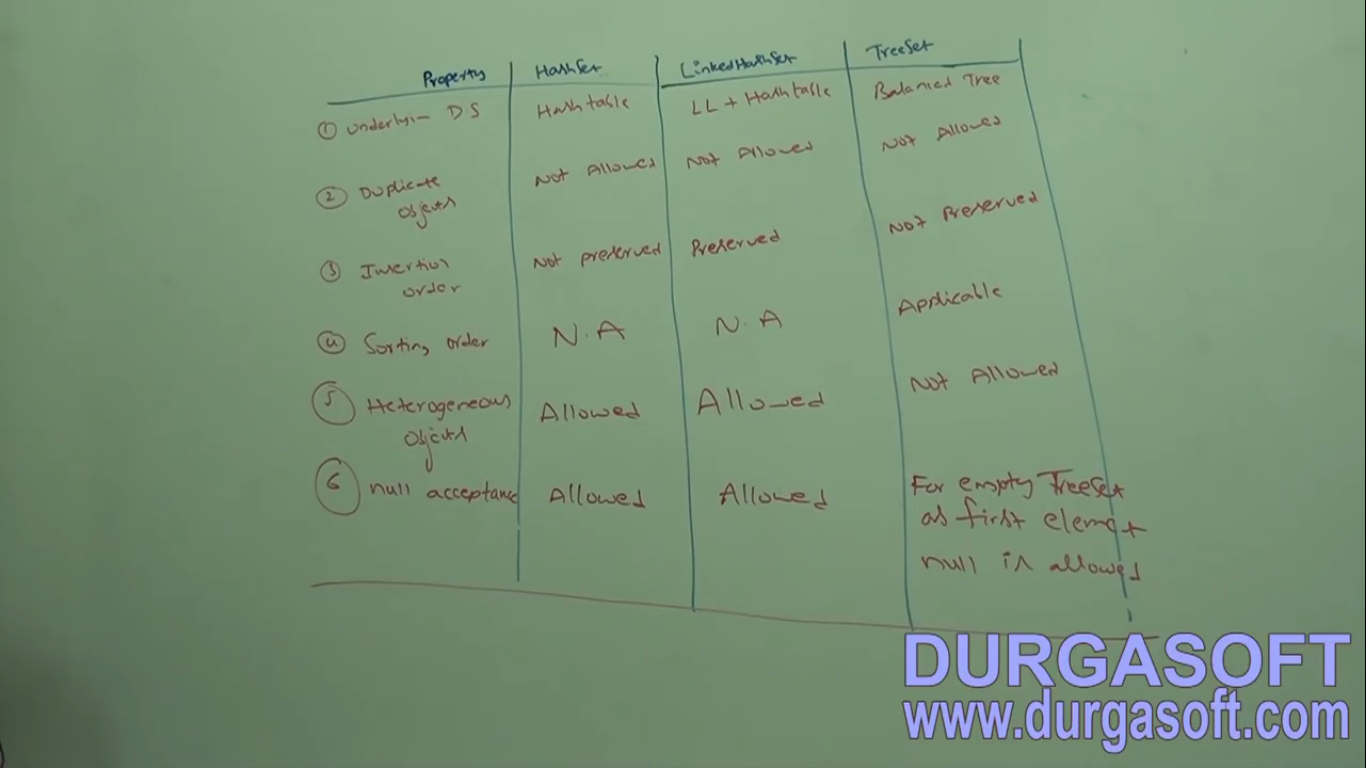 Property HashSet LinkedHashSet TreeSet
① Underlyi— DS Hashtable LL + Hashtable Balanced Tree
② Duplicate Not Allowed Not Allowed Not Allowed
objects
③ Insertion Not preserved Preserved Not Preserved
order
④ Sorting order N.A N.A Applicable
⑤ Heterogeneous Allowed Allowed Not Allowed
objects
⑥ null acceptance Allowed Allowed For empty TreeSet
as first element
null is allowed
DURGASOFT
www.durgasoft.com